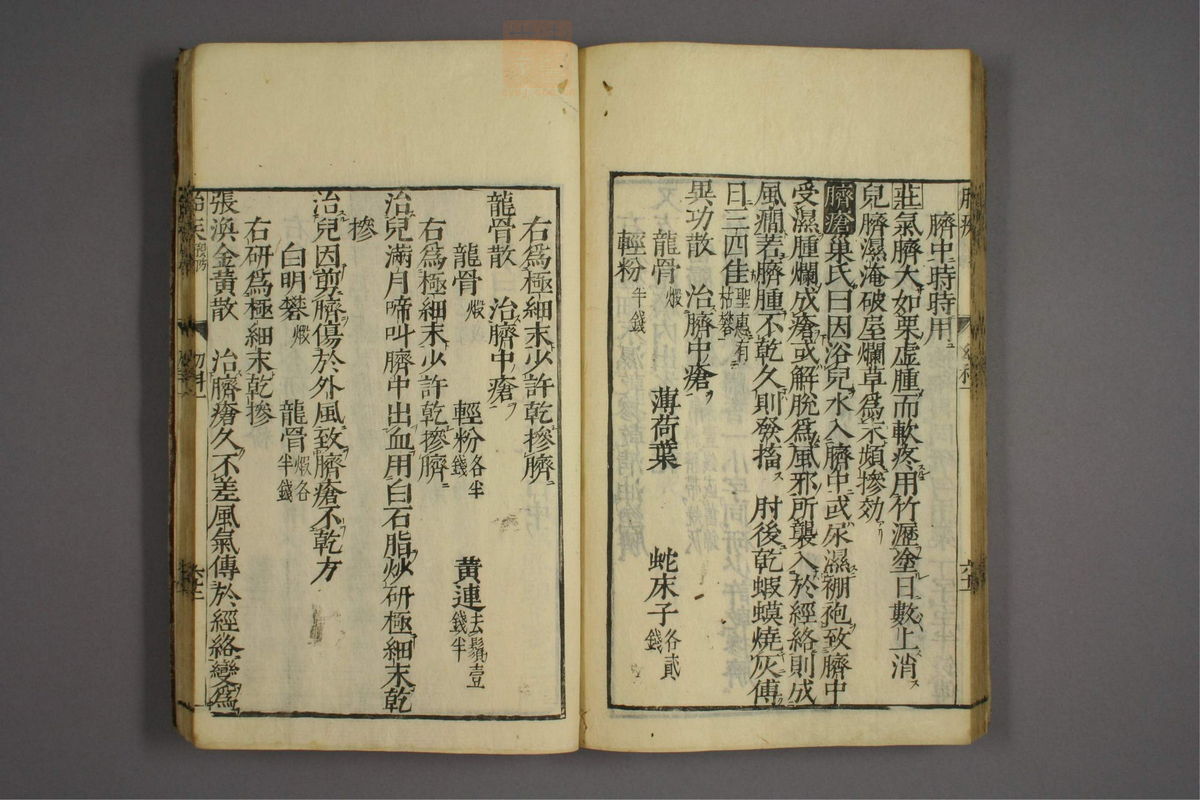 臍中時時用
莊氣臍大如栗虛腫而軟疼用竹瀝塗日數上消
兒臍濕淹破屋爛草為末頻摻効
臍瘡巢氏曰因浴兒水入臍中或尿濕綳袍致臍中
受濕腫爛成瘡或解脫為風邪所襲入於經絡則成
風癇若臍腫不乾久則發搐 肘後乾蝦蟆燒灰傅
日三四佳聖惠有枯礬
異功散 治臍中瘡
龍骨煅 薄荷葉 蛇床子各貳錢
輕粉半錢
右為極細末少許乾摻臍
龍骨散 治臍中瘡
龍骨煅 輕粉各半錢 黃連去鬚壹錢半
右為極細末少許乾摻臍
治兒滿月啼叫臍中出血用白石脂炒研極細末乾
摻
治兒因剪臍傷於外風致臍瘡不乾方
白明礬煅 龍骨煅各半錢
右研為極細末乾摻
張渙金黃散 治臍瘡久不差風氣傳於經絡變為